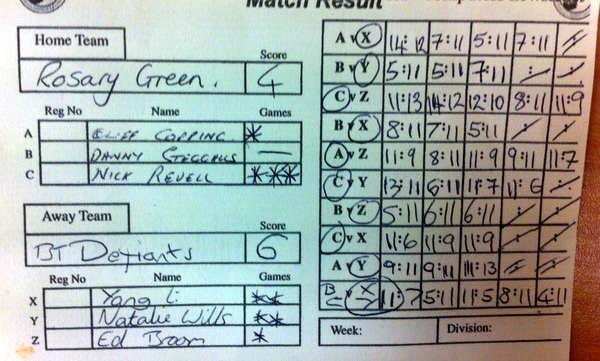 Match Result
Home Team
Score
Rosary Green. 4
Reg No Name Games
A CLIFF COPPING *
B DANNY —
C NICK REVELL ***
Away Team
Score
BT Defiants 6
Reg No Name Games
X Yang Li **
Y Natalie Wills **
Z Ed Broom *
A v X 14:12 7:11 5:11 7:11
B v Y 5:11 5:11 7:11
C v Z 11:13 14:12 12:10 8:11 11:9
B v X 8:11 7:11 5:11
A v Z 11:9 8:11 11:9 9:11 11:7
C v Y 13:11 6:11 11:7 11:6
B v Z 5:11 6:11 6:11
C v X 11:6 11:9 11:9
A v Y 9:11 9:11 11:13
B C v X Y 11:7 5:11 11:5 8:11 4:11
Week: Division: